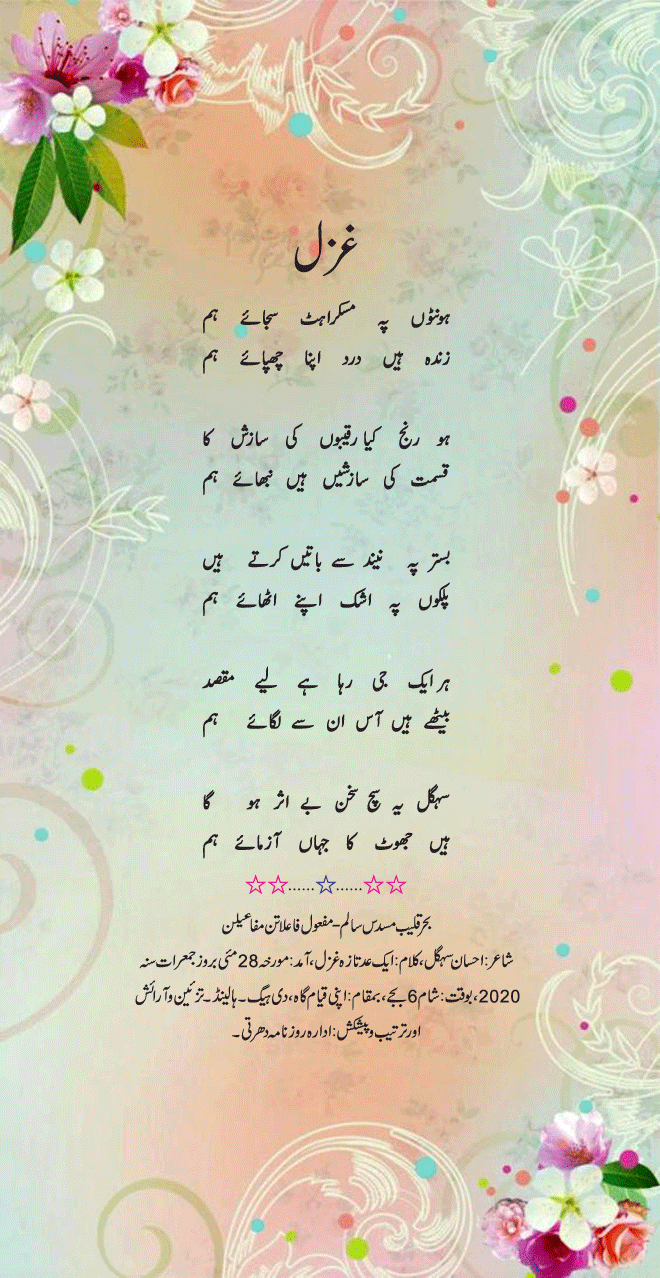 غزل
ہونٹوں پہ مسکراہٹ سجائے ہم
زندہ ہیں درد اپنا چھپائے ہم
ہو رنج کیا رقیبوں کی سازش کا
قسمت کی سازشیں ہیں نبھائے ہم
بستر پہ نیند سے باتیں کرتے ہیں
پلکوں پہ اشک اپنے اٹھائے ہم
ہر ایک جی رہا ہے لیے مقصد
بیٹھے ہیں آس ان سے لگائے ہم
سہگل یہ سچ سخن بے اثر ہو گا
ہیں جھوٹ کا جہاں آزمائے ہم
☆☆......☆......☆☆
بحر قلیب مسدس سالم- مفعول فاعلاتن مفاعیلن
شاعر: احسان سہگل، کلام: ایک عدد تازہ غزل، آمد: مورخہ 28 مئی بروز جمعرات سنہ
2020، بوقت: شام 6 بجے، بمقام: اپنی قیام گاہ، دی ہیگ۔ ہالینڈ۔ تزئین و آرائش
اور ترتیب و پیشکش: ادارہ روزنامہ دھرتی۔